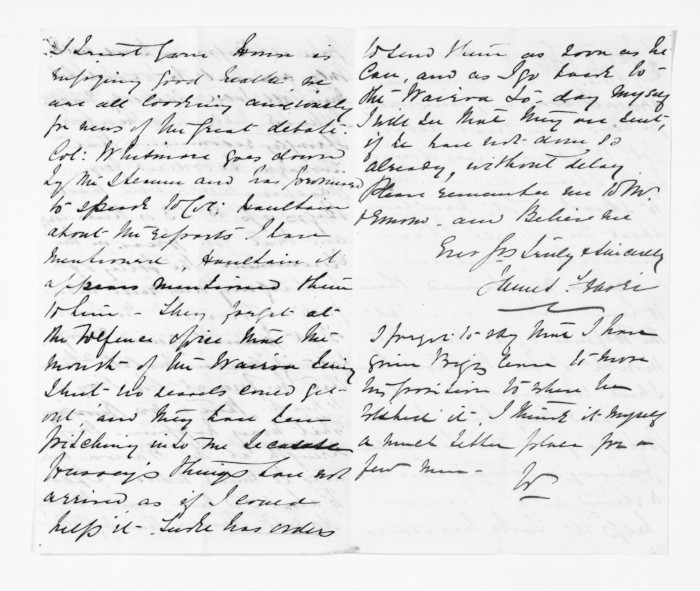 I trust Gov. is
enjoying good health we
are all looking anxiously
for news of the great debate.
Col: Whitmore goes down
by the Steamer and has promised
to speak to Col: Haultain
about the reports I have
mentioned, Haultain it
appears mentioned them
to him - They forget at
the Defence office that the
mouth of the Wairoa being
shut no vessels could get
out, and they have been
pitching into me because
things have not
arrived as if I could
help it. has orders
to send them as soon as he
can, and as I go back to
the Wairoa to-day myself
I will see that they are sent,
if he have not done so
already, without delay
Please remember me to Mr.
and Believe me
Ever yrs truly & sincerely
James
I forgot to say that I have
given Biggs leave to move
his position to where he
wished it, I think it myself
a much better place for a
few men -